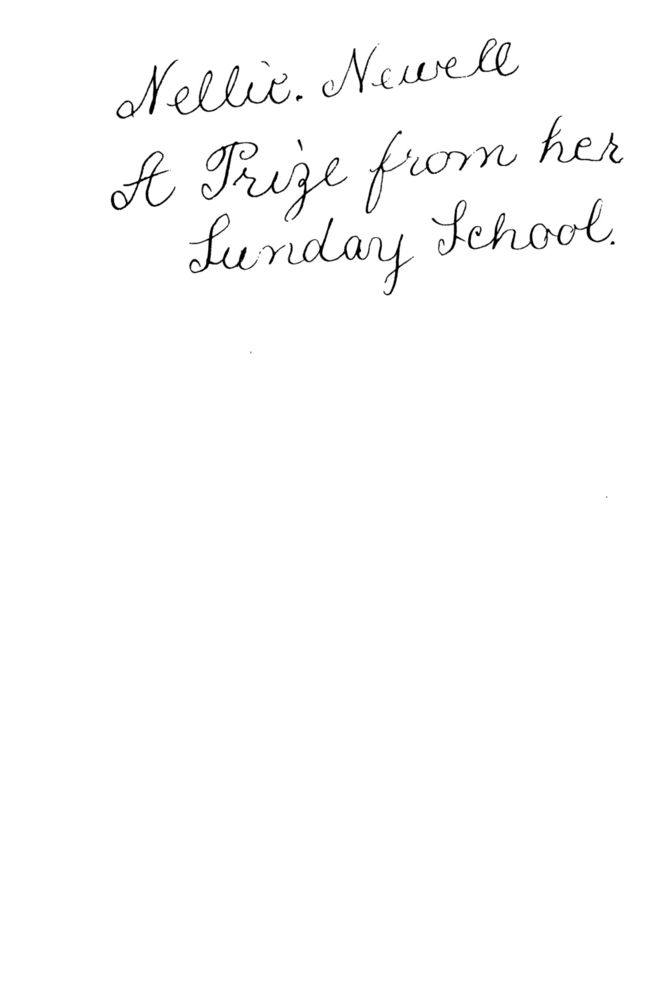 Nellie. Newell
A Prize from her
Sunday School.